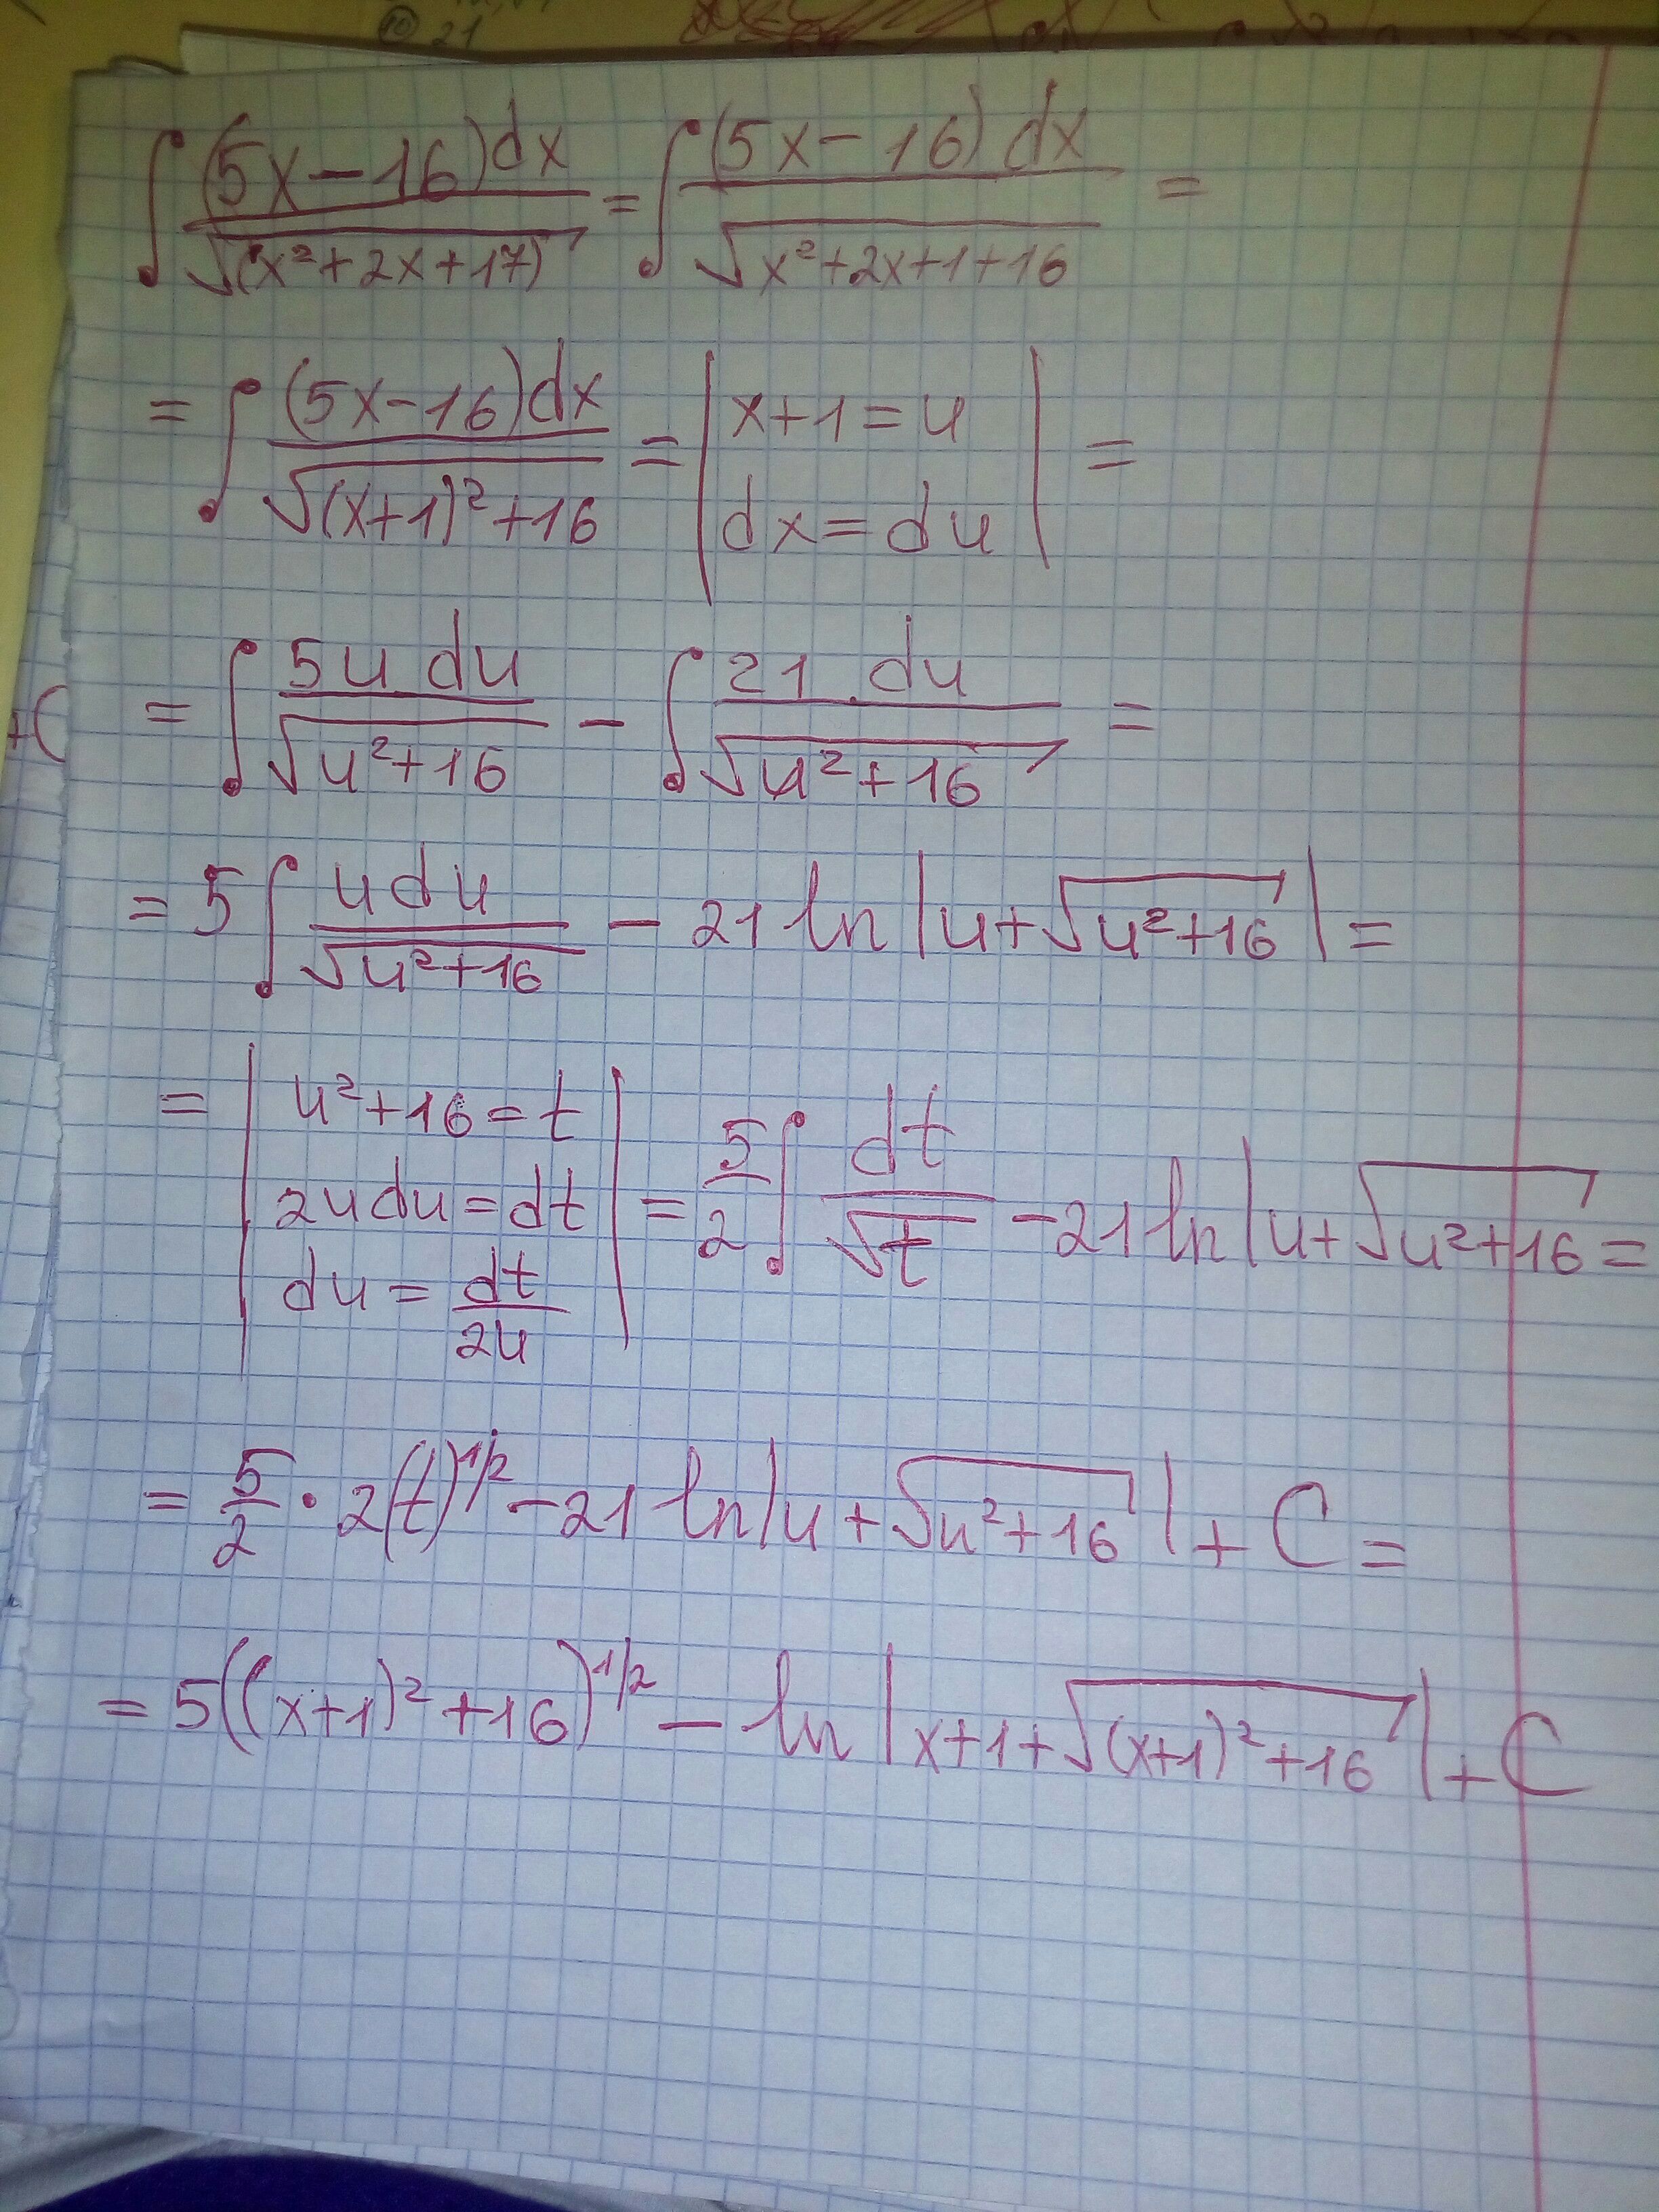 ⑩ 21
∫ (5x-16)dx / √(x²+2x+17) = ∫ (5x-16) dx / √x²+2x+1+16 =
= ∫ (5x-16)dx / √(x+1)²+16 = | x+1=u dx=du | =
+C
= ∫ 5u du / √u²+16 - ∫ 21 du / √u²+16 =
= 5 ∫ u du / √u²+16 - 21 ln |u+√u²+16| =
= | u²+16=t 2udu=dt du=dt/2u | = 5/2 ∫ dt/√t - 21 ln |u+√u²+16 =
= 5/2 · 2(t)^1/2 - 21 ln |u+√u²+16| + C =
= 5((x+1)²+16)^1/2 - ln |x+1+√(x+1)²+16| + C